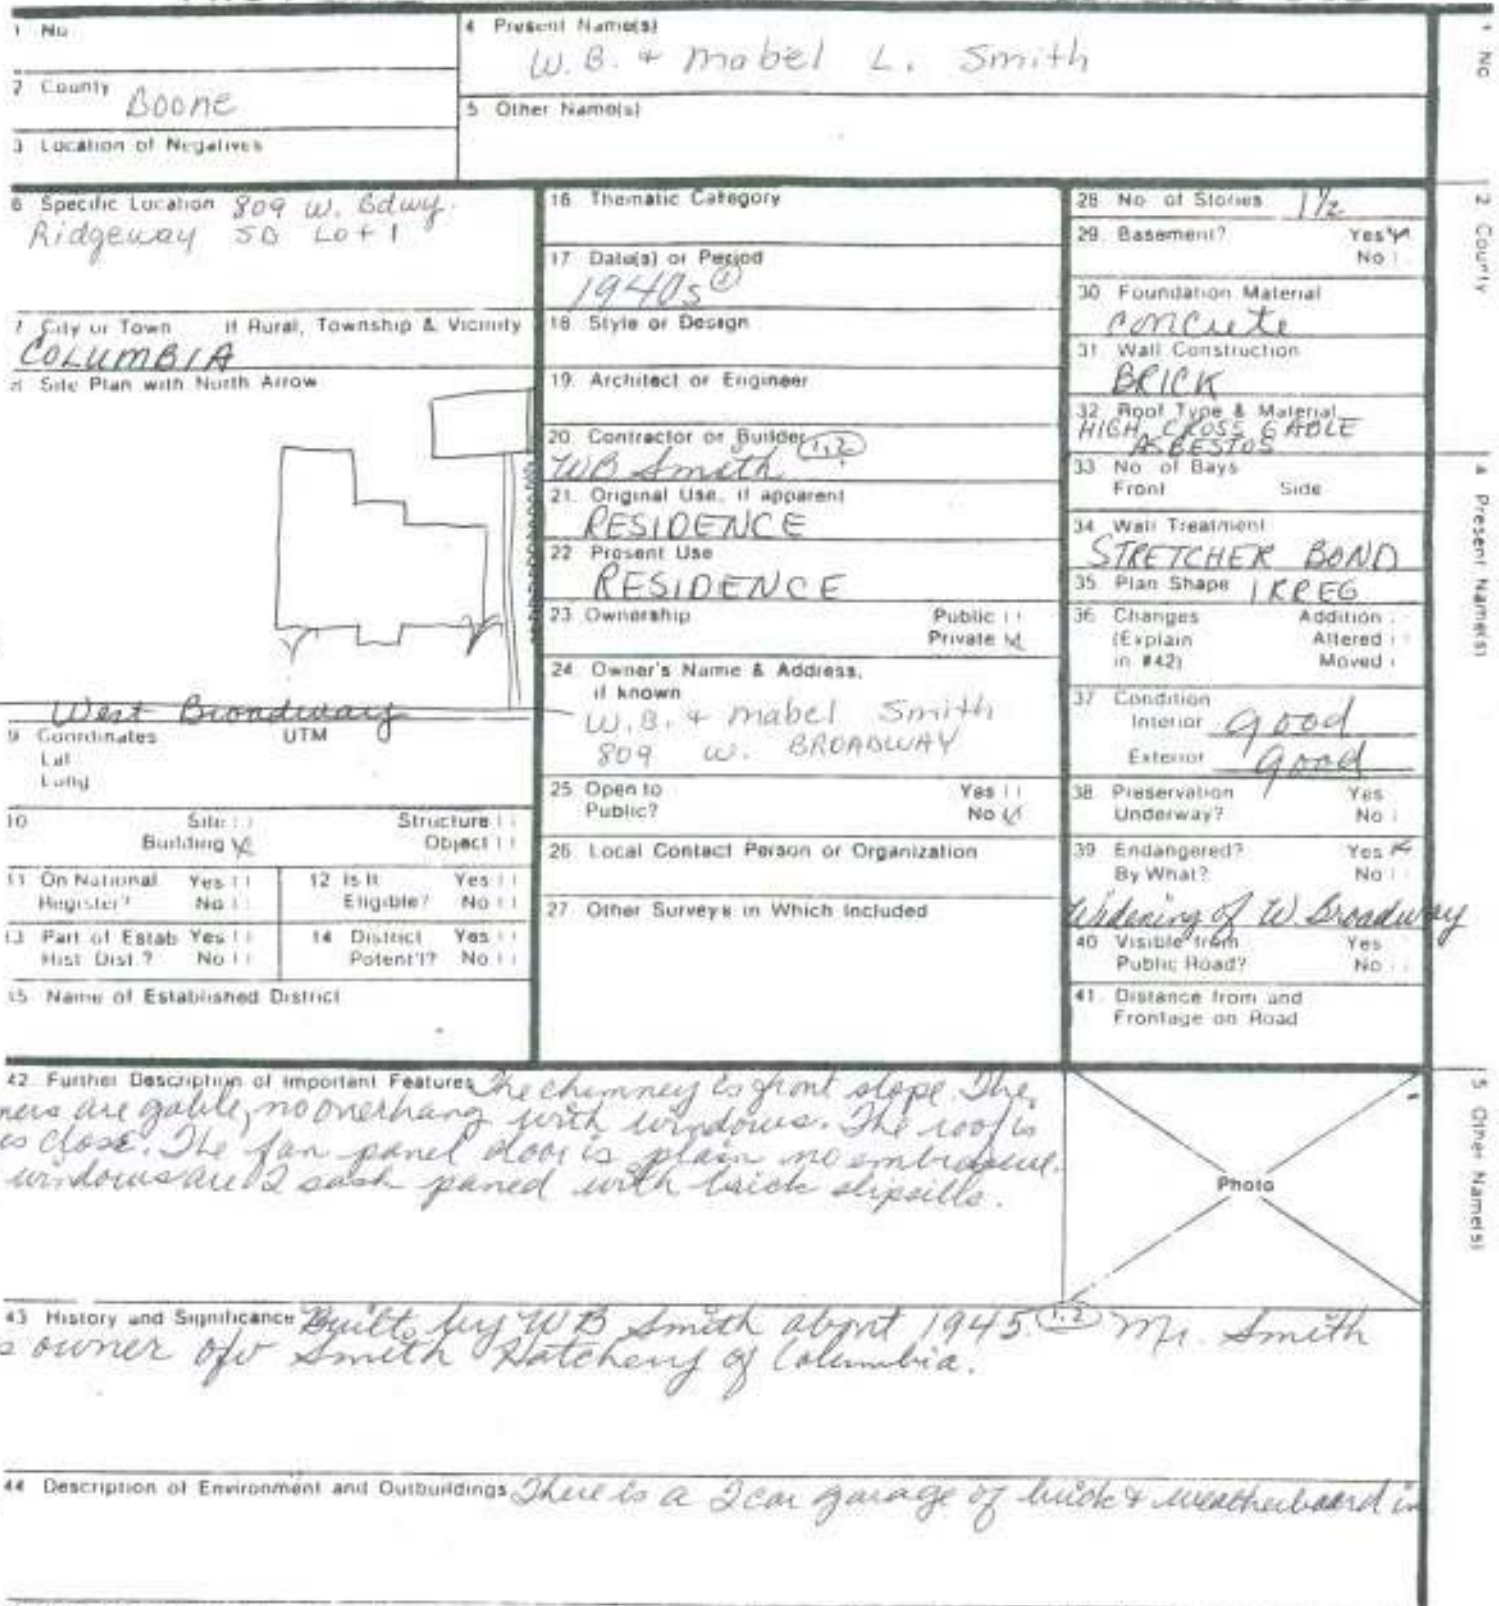 1 No.
4 Present Name(s)
W. B. & Mabel L. Smith
2 County
Boone
5 Other Name(s)
3 Location of Negatives
6 Specific Location 809 W. Bdwy.
Ridgeway SD Lot 1
7 City or Town If Rural, Township & Vicinity
COLUMBIA
8 Site Plan with North Arrow
West Broadway
9 Coordinates UTM
Lat
Long
10 Site Structure
Building Object
11 On National Register? Yes No
12 Is It Eligible? Yes No
13 Part of Estab Hist Dist.? Yes No
14 District Potent'l? Yes No
15 Name of Established District
16 Thematic Category
17 Date(s) or Period
1940s ①
18 Style or Design
19. Architect or Engineer
20. Contractor or Builder 1,2
WB Smith
21. Original Use, if apparent
RESIDENCE
22 Present Use
RESIDENCE
23 Ownership Public
Private
24 Owner's Name & Address,
if known
W.B. & Mabel Smith
809 W. BROADWAY
25 Open to Yes
Public? No
26 Local Contact Person or Organization
27 Other Surveys in Which Included
28 No. of Stories 1½
29. Basement? Yes
No
30 Foundation Material
concrete
31 Wall Construction
BRICK
32 Roof Type & Material
HIGH CROSS GABLE
ASBESTOS
33 No. of Bays
Front Side
34 Wall Treatment
STRETCHER BOND
35 Plan Shape IRREG
36 Changes Addition
(Explain Altered
in #42) Moved
37 Condition
Interior good
Exterior good
38 Preservation Yes
Underway? No
39 Endangered? Yes
By What? No
Widening of W. Broadway
40 Visible from Yes
Public Road? No
41. Distance from and
Frontage on Road
42. Further Description of Important Features The chimney is front slope. The
mers are gable, no overhang with windows. The roof is
is close. The fan panel door is plain no embrasure.
windows are 2 sash paned with brick slipsills.
Photo
43 History and Significance Built by WB Smith about 1945. 1,2 Mr. Smith
s owner of Smith Hatchery of Columbia.
44 Description of Environment and Outbuildings There is a 2 car garage of brick & weatherboard in
1 No
2 County
4 Present Name(s)
5 Other Name(s)